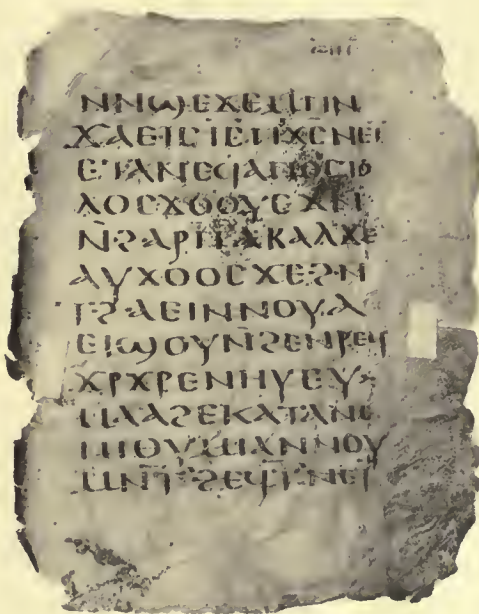 ⲛⲛϣⲉϫⲉ ⲙⲡⲛ
ϫⲁⲉⲓⲥ ⲓⲏⲥ ⲡⲉⲭⲥ ⲛⲉⲓ
ⲉⲧⲁⲛⲉϥⲁⲡⲟⲥⲧⲟ
ⲗⲟⲥ ϫⲟⲟⲩ ⲉϫⲛ
ⲛ̄ϩⲁⲣⲡ ⲁⲕⲁⲗ ϫⲉ
ⲁⲩϫⲟⲟⲥ ϫⲉ ϩⲛ
ⲧϩⲁⲉⲓ ⲛⲛⲟⲩⲁ
ⲉⲓϣ ⲟⲩⲛ̄ ϩⲉⲛⲣⲉϥ
ϫⲣϫⲣⲉ ⲛⲏⲩ ⲉⲩ
ⲙⲁⲁϩⲉ ⲕⲁⲧⲁ ⲛⲉ
ⲡⲓⲑⲩⲙⲓⲁ ⲛⲛⲟⲩ
ⲙⲛ̄ⲧϩⲉϥⲧ ⲛⲉⲓ